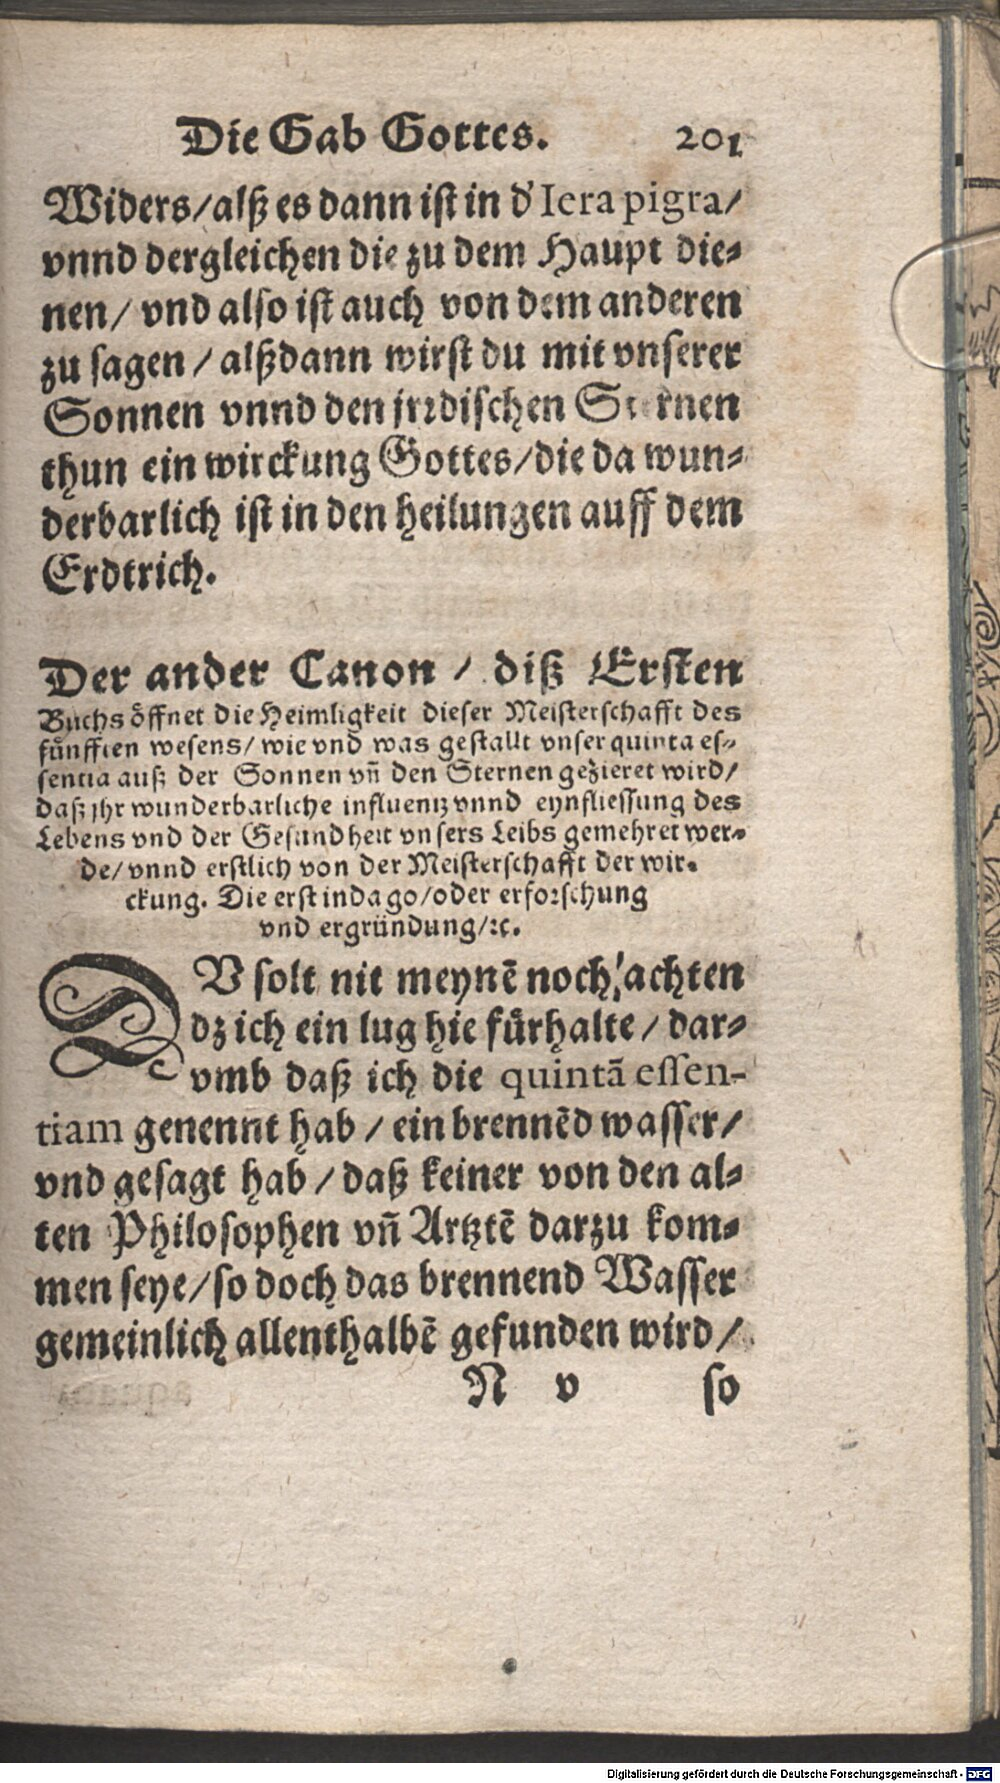 Die Gab Gottes. 201
Widers/alß es dann ist in d' Iera pigra/
vnnd dergleichen die zu dem Haupt die-
nen/ vnd also ist auch von dem anderen
zu sagen / alßdann wirst du mit vnserer
Sonnen vnnd den jrrdischen Sternen
thun ein wirckung Gottes/die da wun-
derbarlich ist in den heilungen auff dem
Erdtrich.
Der ander Canon / diß Ersten
Buchs öffnet die Heimligkeit dieser Meisterschafft des
fünfften wesens/ wie vnd was gestallt vnser quinta es-
sentia auß der Sonnen vñ den Sternen gezieret wird/
daß jhr wunderbarliche influentz vnnd eynfliessung des
Lebens vnd der Gesundheit vnsers Leibs gemehret wer-
de/ vnnd erstlich von der Meisterschafft der wir-
ckung. Die erst indago/oder erforschung
vnd ergründung/ꝛc.
DV solt nit meynē noch achten
dz ich ein lug hie fürhalte / dar-
vmb daß ich die quintā essen-
tiam genennt hab / ein brennēd wasser/
vnd gesagt hab / daß keiner von den al-
ten Philosophen vñ Artztē darzu kom-
men seye/so doch das brennend Wasser
gemeinlich allenthalbē gefunden wird/
N v so
Digitalisierung gefördert durch die Deutsche Forschungsgemeinschaft - DFG